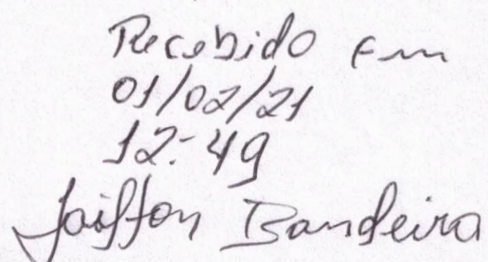 Recebido em
01/02/21
12:49
Bandeira